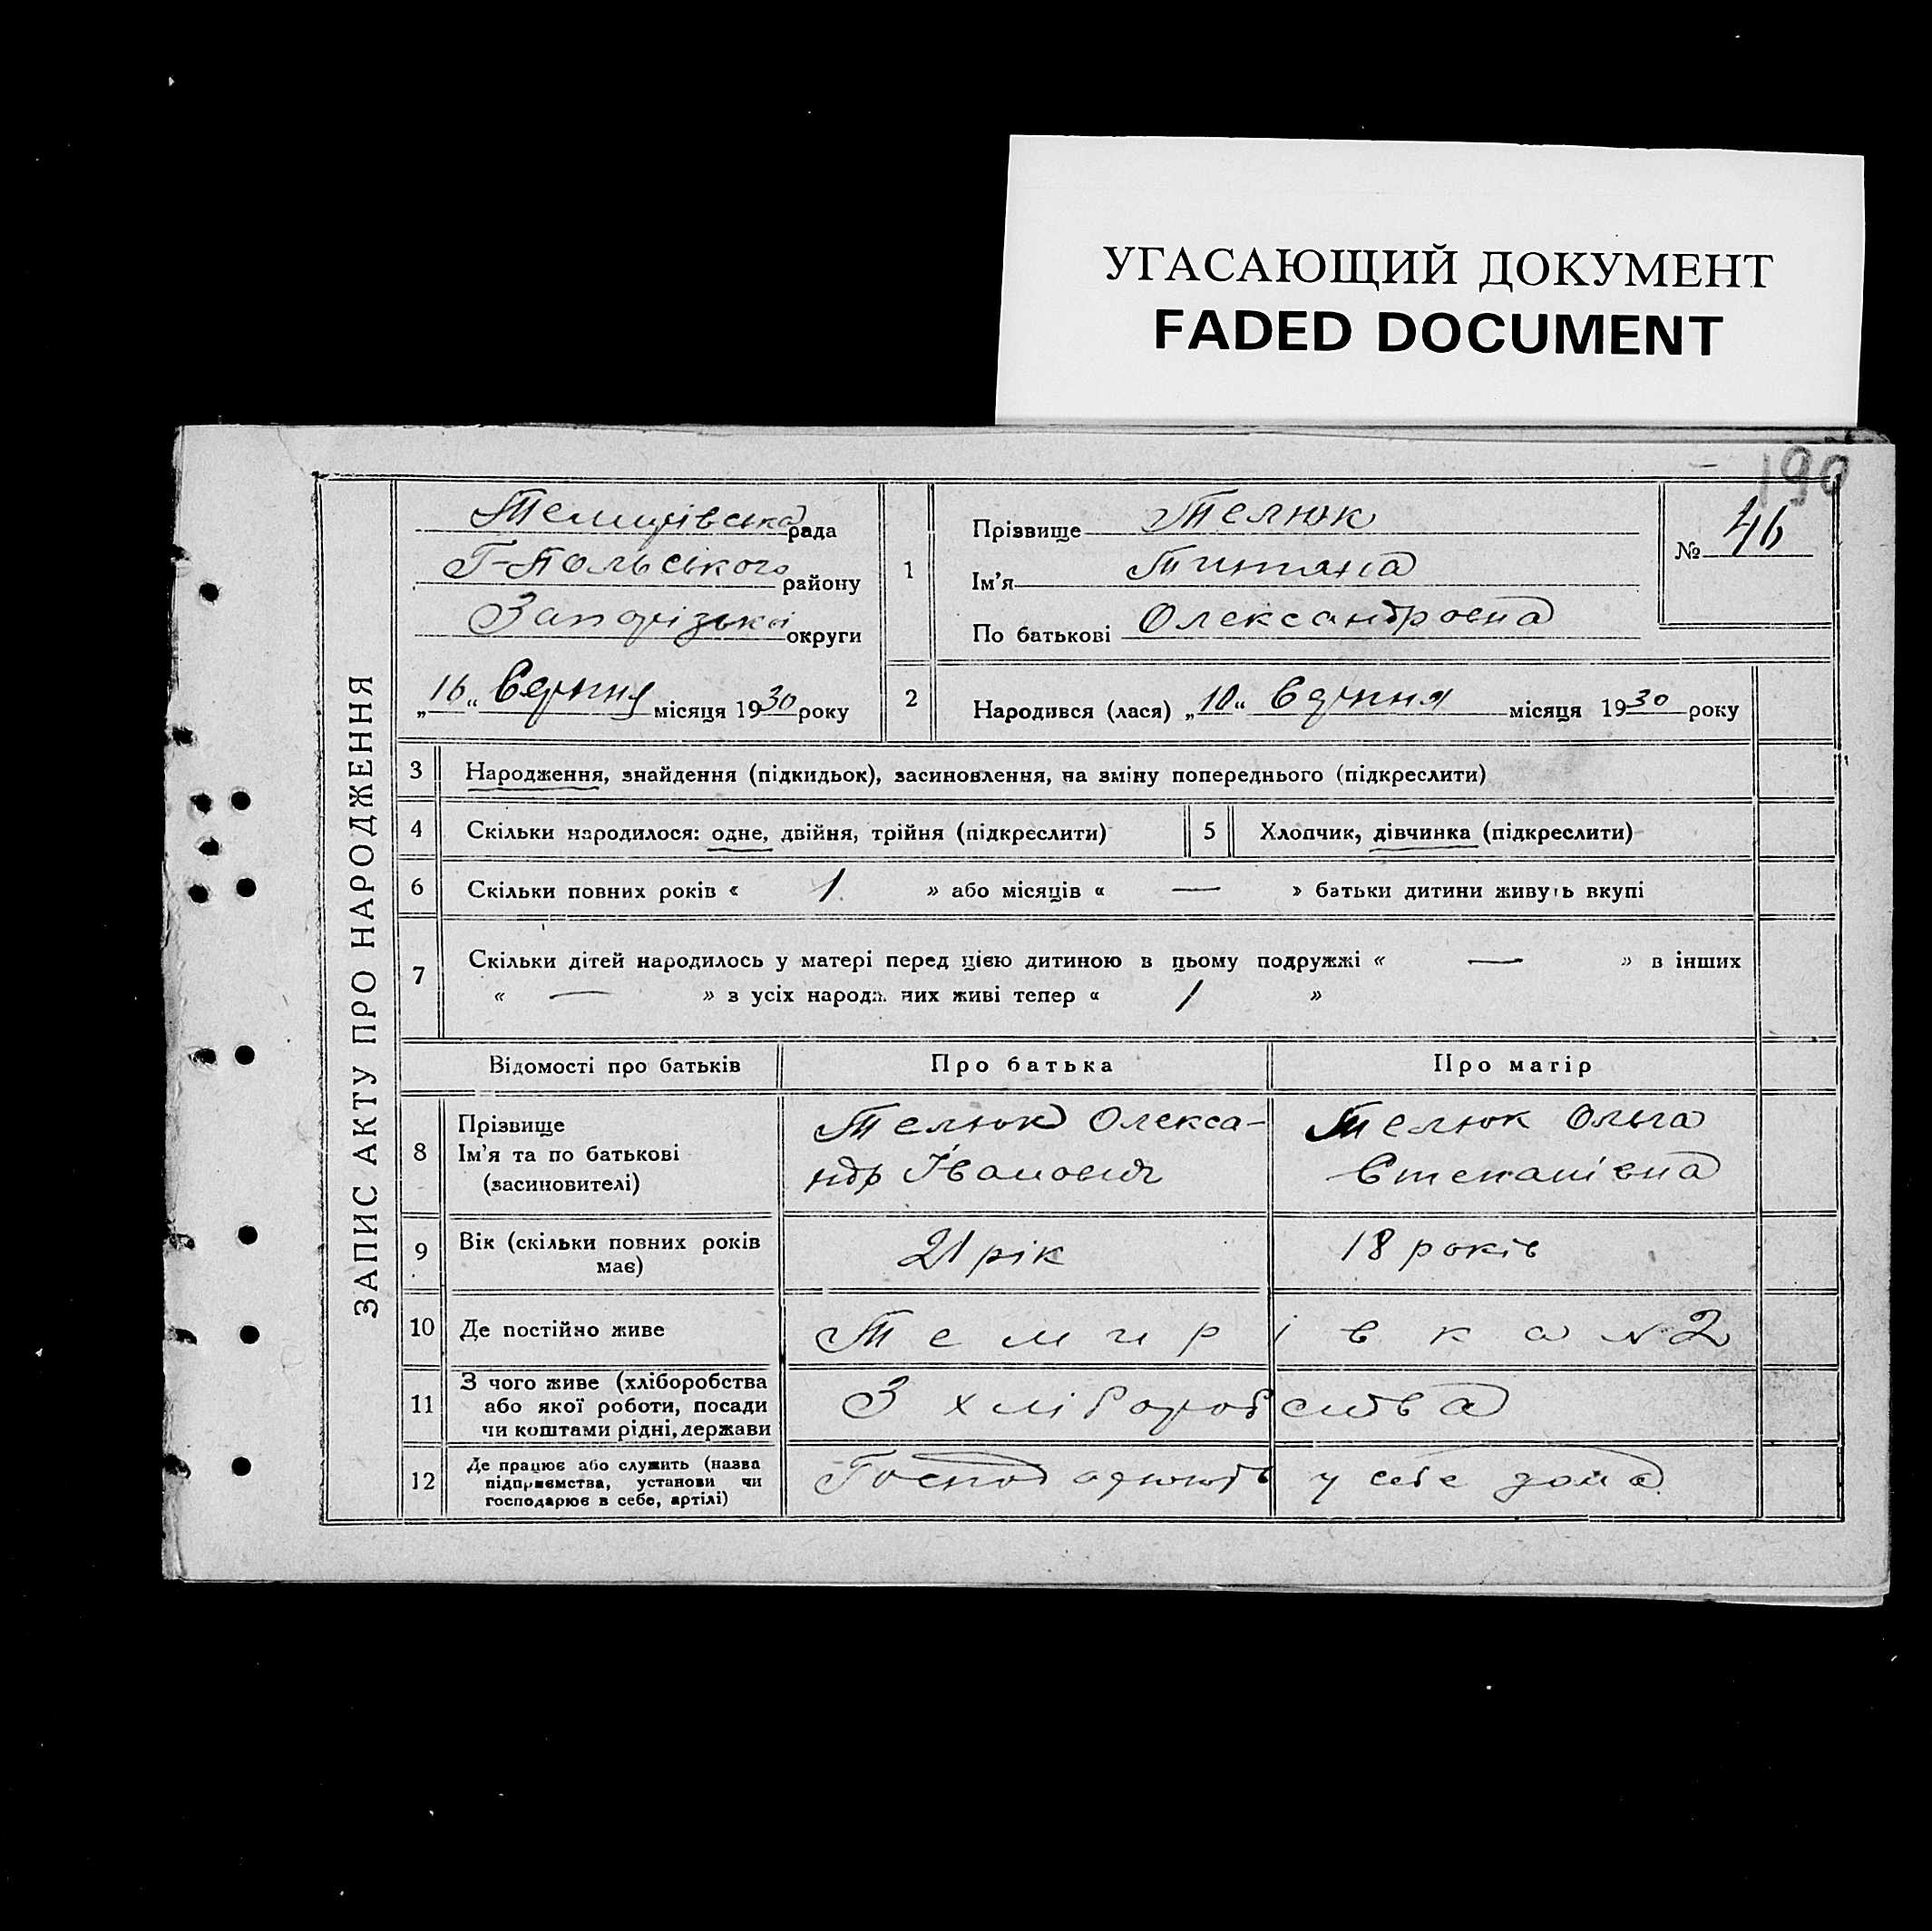 УГАСАЮЩИЙ ДОКУМЕНТ
FADED DOCUMENT
190
ЗАПИС АКТУ ПРО НАРОДЖЕННЯ
Темирівська рада
Г-Польського району
Запорізької округи
„16“ Серпня місяця 1930 року
1
Прізвище Телюк
Ім'я Титяна
По батькові Олександровна
№ 46
2 Народився (лася) „10“ Серпня місяця 1930 року
3 Народження, знайдення (підкидьок), засиновлення, на зміну попереднього (підкреслити)
4 Скільки народилося: одне, двійня, трійня (підкреслити) 5 Хлопчик, дівчинка (підкреслити)
6 Скільки повних років « 1 » або місяців « — » батьки дитини живуть вкупі
7 Скільки дітей народилось у матері перед цією дитиною в цьому подружжі « — » в інших
« — » з усіх народжених живі тепер « 1 »
Відомості про батьків Про батька Про матір
8 Прізвище
Ім'я та по батькові
(засиновителі)
Телюк Олекса-
ндр Іванович
Телюк Ольга
Степанівна
9 Вік (скільки повних років
має)
21 рік 18 років
10 Де постійно живе Темирівка №2
11 З чого живе (хліборобства
або якої роботи, посади
чи коштами рідні, держави
З хліборобства
12 Де працює або служить (назва
підприємства, установи чи
господарює в себе, артілі)
Господарюють у себе дома